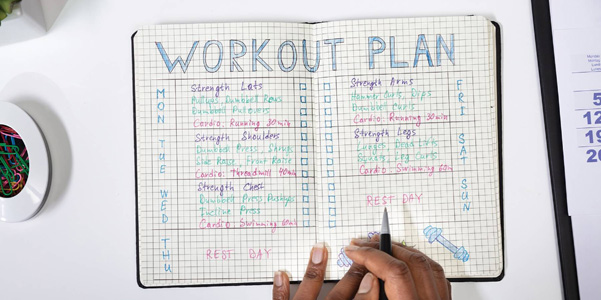 WORKOUT PLAN
MON
Strength Lats
Pullups, Dumbbell Rows
Dumbbell Pullover
Cardio: Running 30min
TUE
Strength Shoulders
Dumbbell Press, Shrugs
Side Raise, Front Raise
Cardio: Threadmill 40min
WED
Strength Chest
Dumbbell Press Pushups
Incline Press
Cardio Swimming 60min
THU
REST DAY
FRI
Strength Arms
Hammer Curls, Dips
Dumbbell Curls
Cardio: Running 30min
SAT
Strength Legs
Lunges, Dead Lifts
Squats, Leg Curls
Cardio: Swimming 60m
SUN
REST DAY
5
12
19